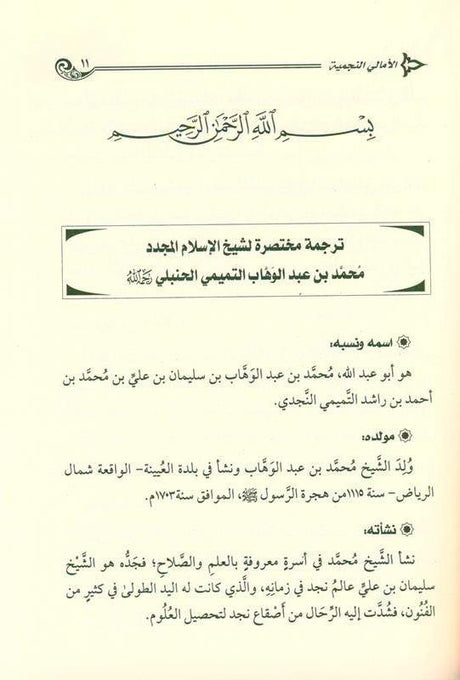 الأمالي النجمية
١١
بِسْمِ اللَّهِ الرَّحْمَنِ الرَّحِيمِ
ترجمة مختصرة لشيخ الإسلام المجدد
مُحمَّد بن عبد الوَهَّاب التميمي الحنبلي رَحِمَهُ اللهُ
اسمه ونسبه:
هو أبو عبد الله، مُحمَّد بن عبد الوَهَّاب بن سليمان بن عليٍّ بن مُحمَّد بن
أحمد بن راشد التَّميمي النَّجدي.
مولده:
وُلِدَ الشَّيخ مُحمَّد بن عبد الوَهَّاب ونشأ في بلدة العُيينة- الواقعة شمال
الرياض- سنة ١١١٥من هجرة الرَّسول ﷺ، الموافق سنة١٧٠٣م.
نشأته:
نشأ الشَّيخ مُحمَّد في أسرةٍ معروفةٍ بالعلمِ والصَّلاحِ؛ فجَدُّه هو الشَّيْخ
سليمان بن عليٍّ عالمُ نجد في زمانِهِ، والَّذي كانت له اليد الطولىٰ في كثيرٍ من
الفُنُون، فشُدَّت إليه الرِّحَال من أَصْقاع نجد لتحصيل العُلُوم.